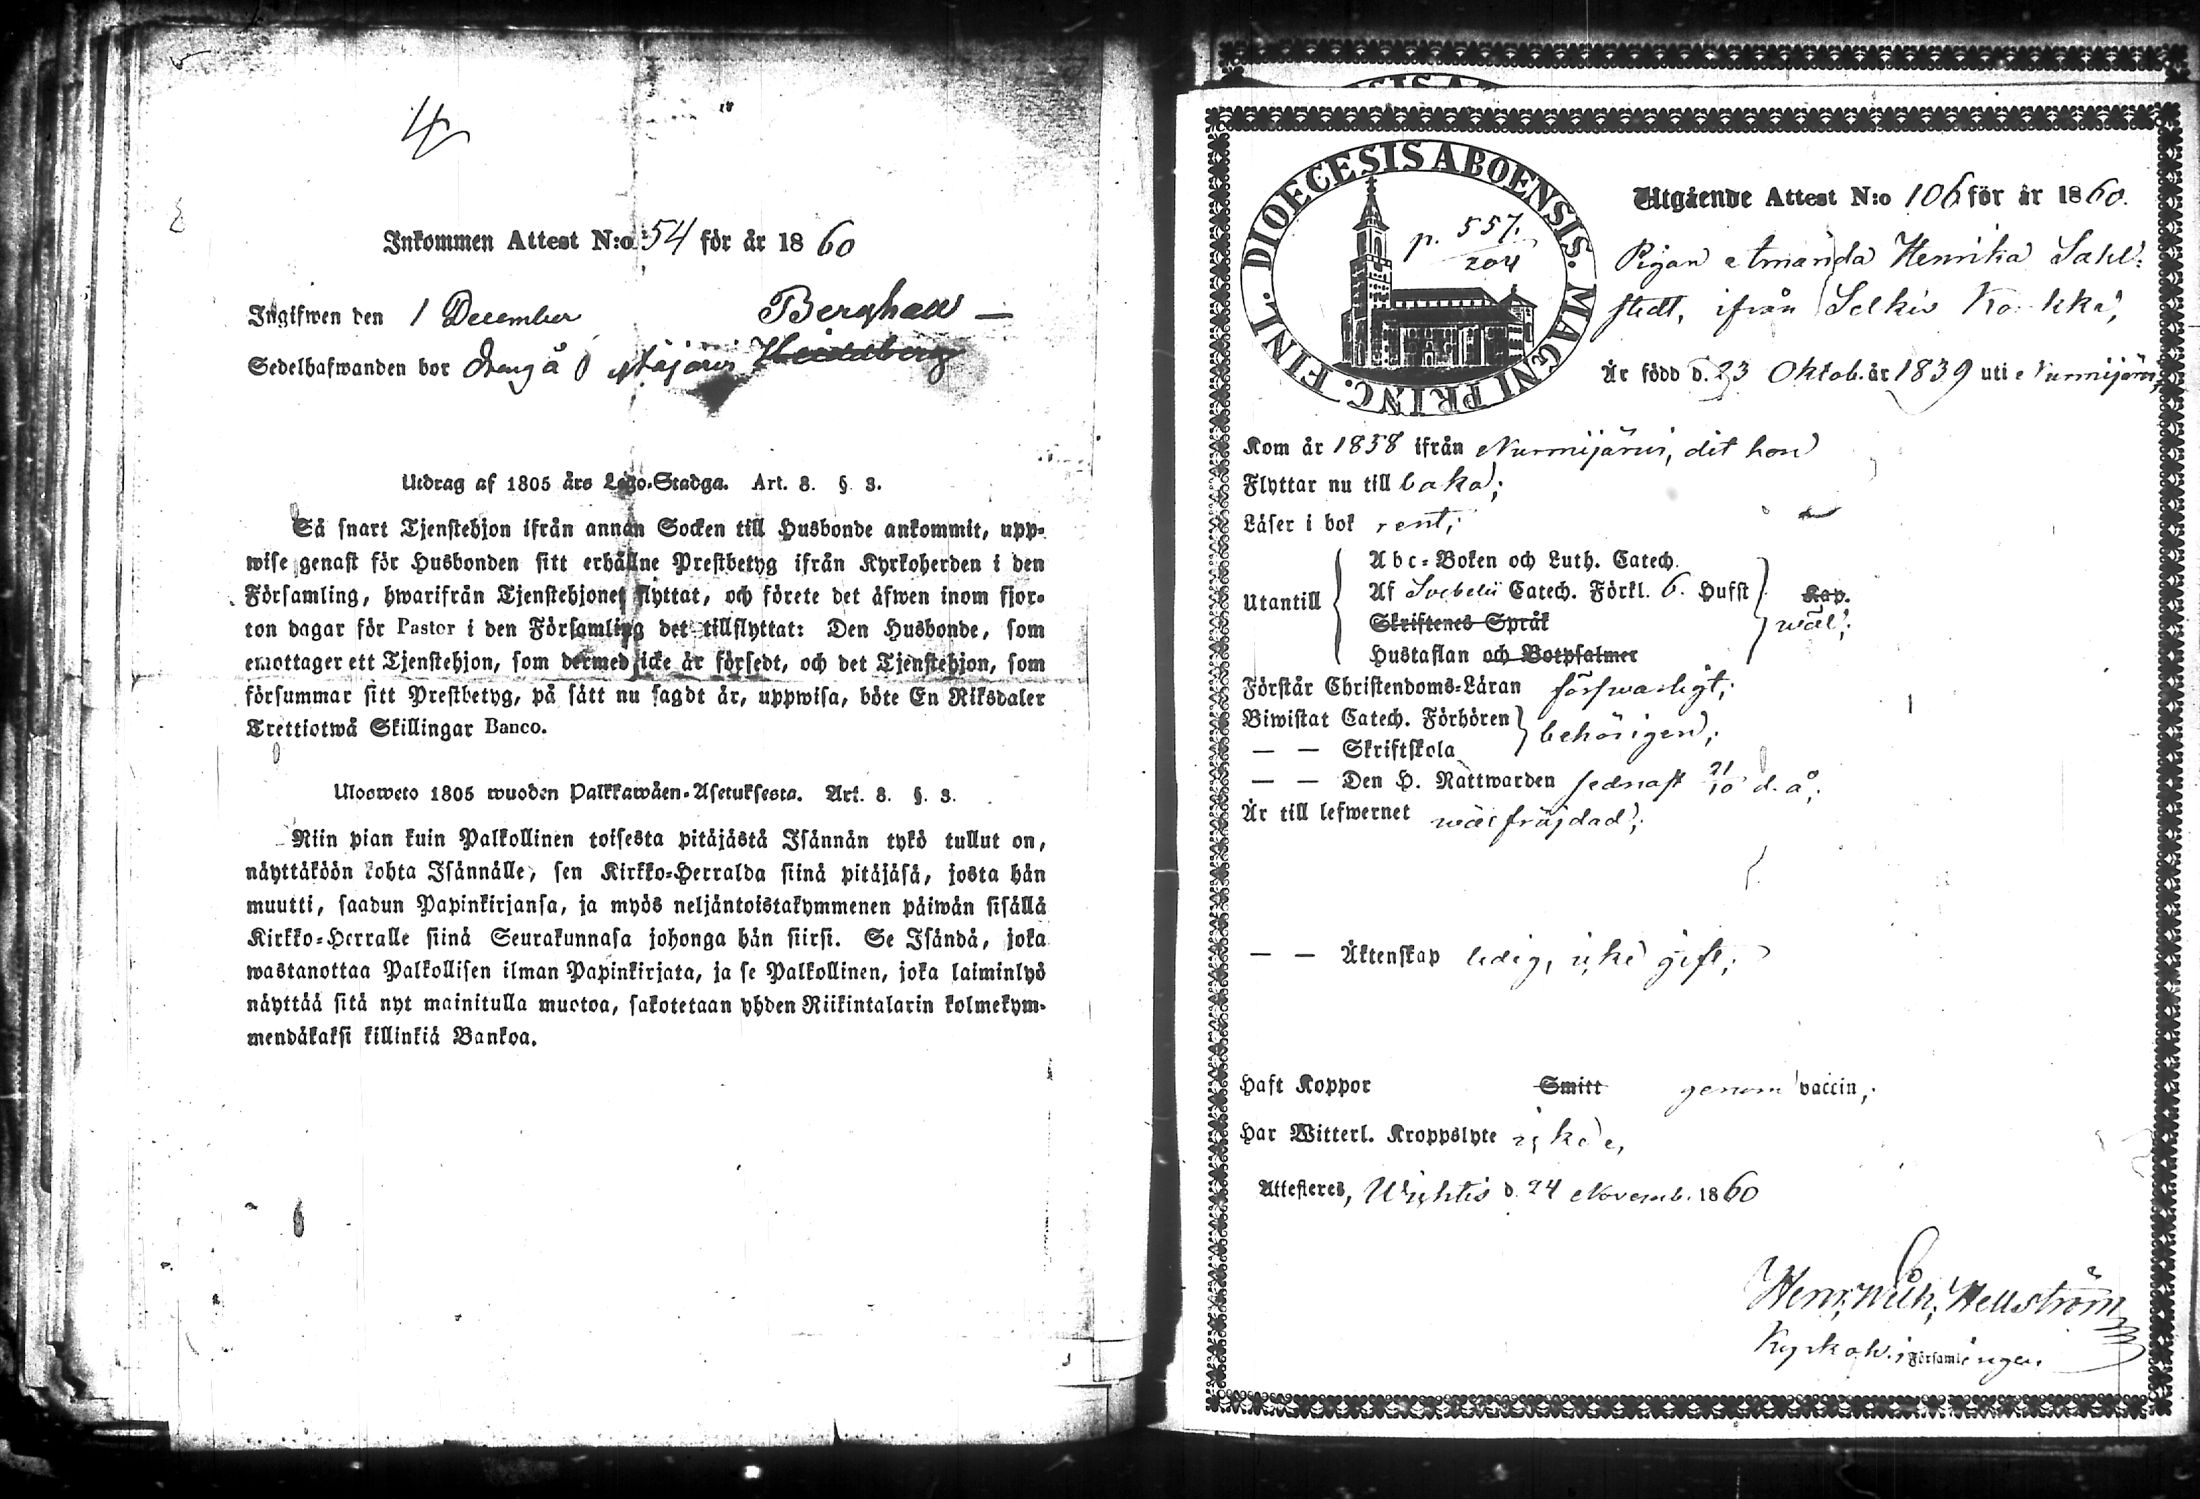 4
Inkommen Attest N:o 54 för år 1860
Ingifwen den 1 December
Berghäll —
Sedelhafwanden bor
Utdrag af 1805 års Lego-Stadga. Art. 8. §. 3.
Så snart Tjenstehjon ifrån annan Socken till Husbonde ankommit, upp-
wise genast för Husbonden sitt erhållne Prestbetyg ifrån Kyrkoherden i den
Församling, hwarifrån Tjenstehjonet flyttat, och förete det äfwen inom fjor-
ton dagar för Pastor i den Församling det tillflyttat: Den Husbonde, som
emottager ett Tjenstehjon, som dermed icke är försedt, och det Tjenstehjon, som
försummar sitt Prestbetyg, på sätt nu sagdt är, uppwisa, böte En Riksdaler
Trettiotwå Skillingar Banco.
Uloosweto 1805 wuoden Palkkawäen-Asetuksesta. Art. 8. §. 3.
Niin pian kuin Palkollinen toisesta pitäjästä Isännän tykö tullut on,
näyttäköön kohta Isännälle, sen Kirkko-Herralda siinä pitäjäsä, josta hän
muutti, saadun Papinkirjansa, ja myös neljäntoistakymmenen päiwän sisällä
Kirkko-Herralle siinä Seurakunnasa johonga hän siirsi. Se Isändä, joka
wastanottaa Palkollisen ilman Papinkirjata, ja se Palkollinen, joka laiminlyö
näyttää sitä nyt mainitulla muotoa, sakotetaan yhden Riikintalarin kolmekym-
mendäkaksi killinkiä Bankoa.
DIOECESIS ABOENSIS. MAGNI PRINC. FINL.
p. 557.
204
Utgående Attest N:o 106 för år 1860.
Pigan Amanda Henrika Sahl-
stedt, ifrån Selkis
Är född d. 23 Oktob. år 1839 uti Nurmijärvi,
Kom år 1858 ifrån Nurmijärvi, dit hon
Flyttar nu till baka;
Läser i bok rent;
Utantill
Abc-Boken och Luth. Catech.
Af Svebelii Catech. Förkl. 6. Hufst Kap.
Skriftenes Språk wäl;
Hustaflan och Botpsalmer
Förstår Christendoms-Läran försvarligt;
Biwistat Catech. Förhören behörigen;
— — Skriftskola
— — Den H. Nattwarden sednast 21/10 d. å.;
Är till lefwernet wälfräjdad;
— — Äktenskap ledig, icke gift;
Haft Koppor Smitt genom vaccin;
Har Witterl. Kroppslyte icke,
Attesteres, Wichtis d. 24 Novemb. 1860
Henr. Wilh. Hellström
Kyrkoh. i Församlingen